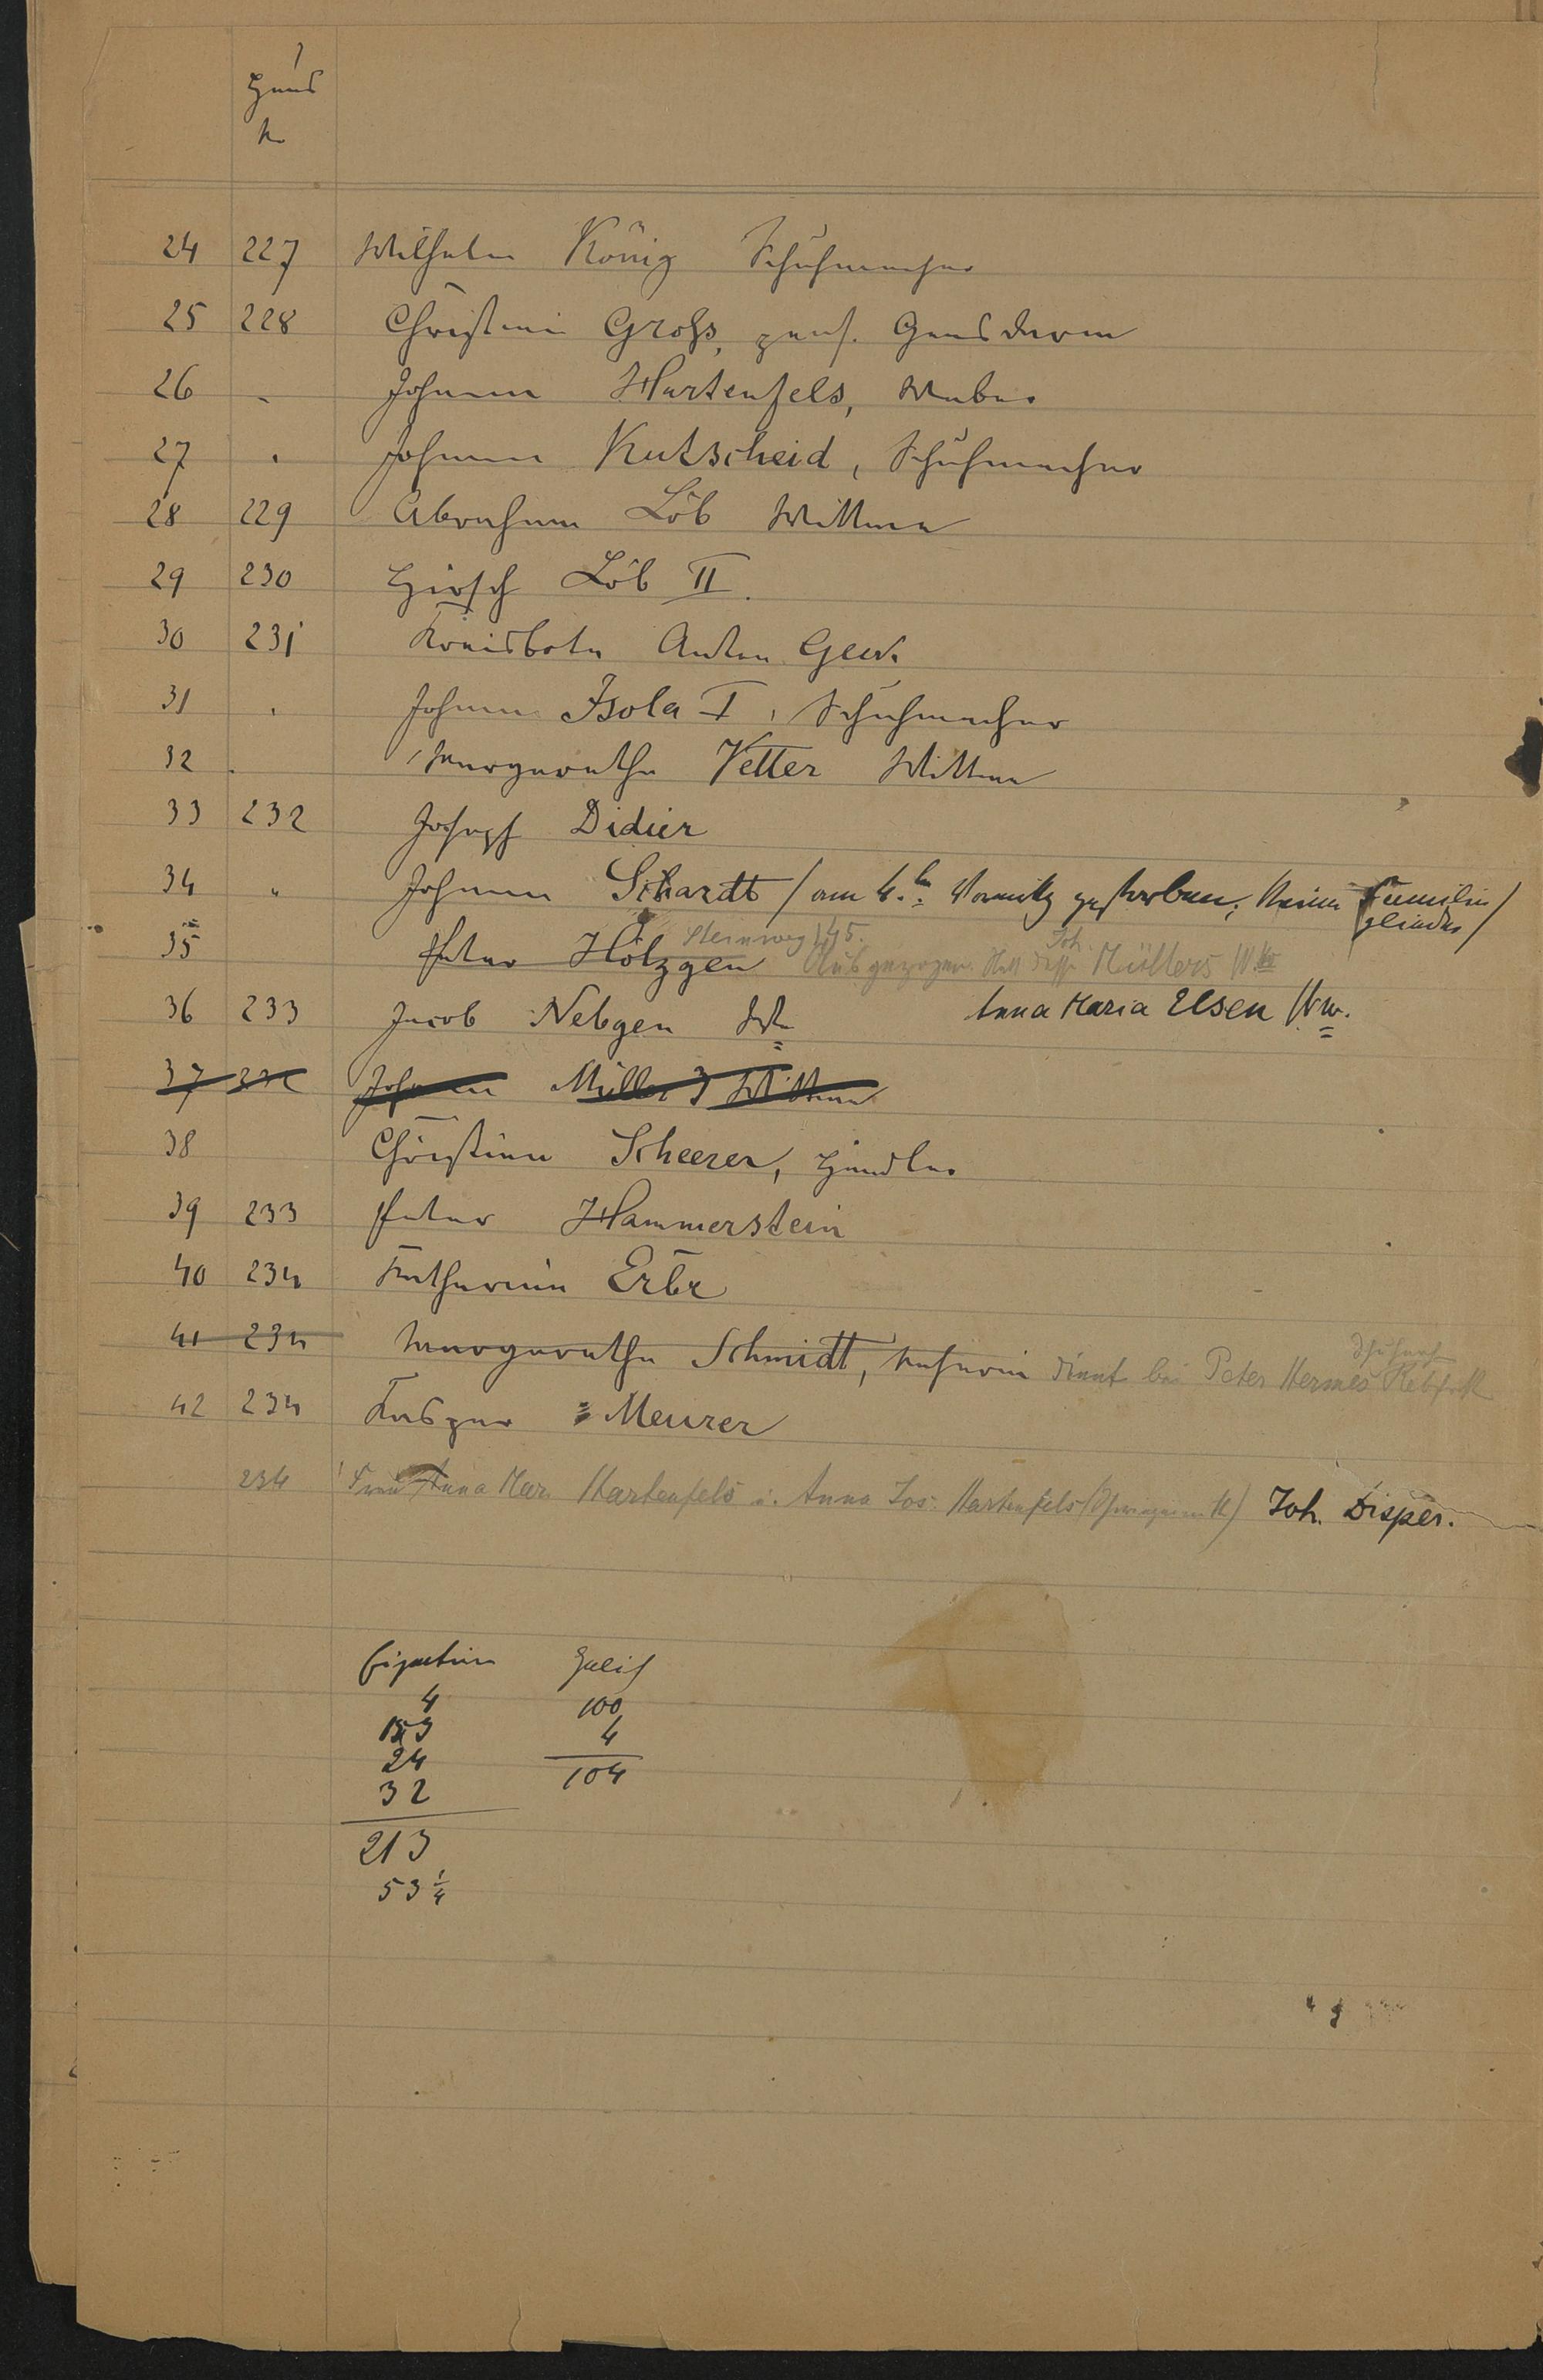 Haus
No
24 227 Wilhelm König Schuhmacher
25 228 Christian Groß, pens. Gensdarm
26 " Johann Hartenfels, Weber
27 " Johann Kutscheid, Schuhmacher
28 229 Abraham Löb Wittwe
29 230 Hirsch Löb II.
30 231 Kreisbote Anton
31 " Johann Isola I, Schuhmacher
32 " Margarethe Vetter Wittwe
33 232 Joseph Didier
34 " Johann Schardt / am 4. gestorben; Keine Familien
glieder /
Steinweg 145. Joh.
35 Peter Hölzgen Ausgezogen. Statt dessen Müllers Wwe
36 233 Jacob Nebgen Ww Anna Maria Elsen Ww.
37 232 Johann Müller 3 Wittwe
38 Christian Scheerer, Händler
39 233 Peter Hammerstein
40 234 Katharina Erbe
41 234 Margarethe Schmidt, Näherin dient bei Peter Hermes
42 234 Kaspar Meurer
234 Frau Anna Mar. Hartenfels u. Anna Jos. Hartenfels Joh. Disper.
4 100
153 4
24 104
32
213
53 1/4